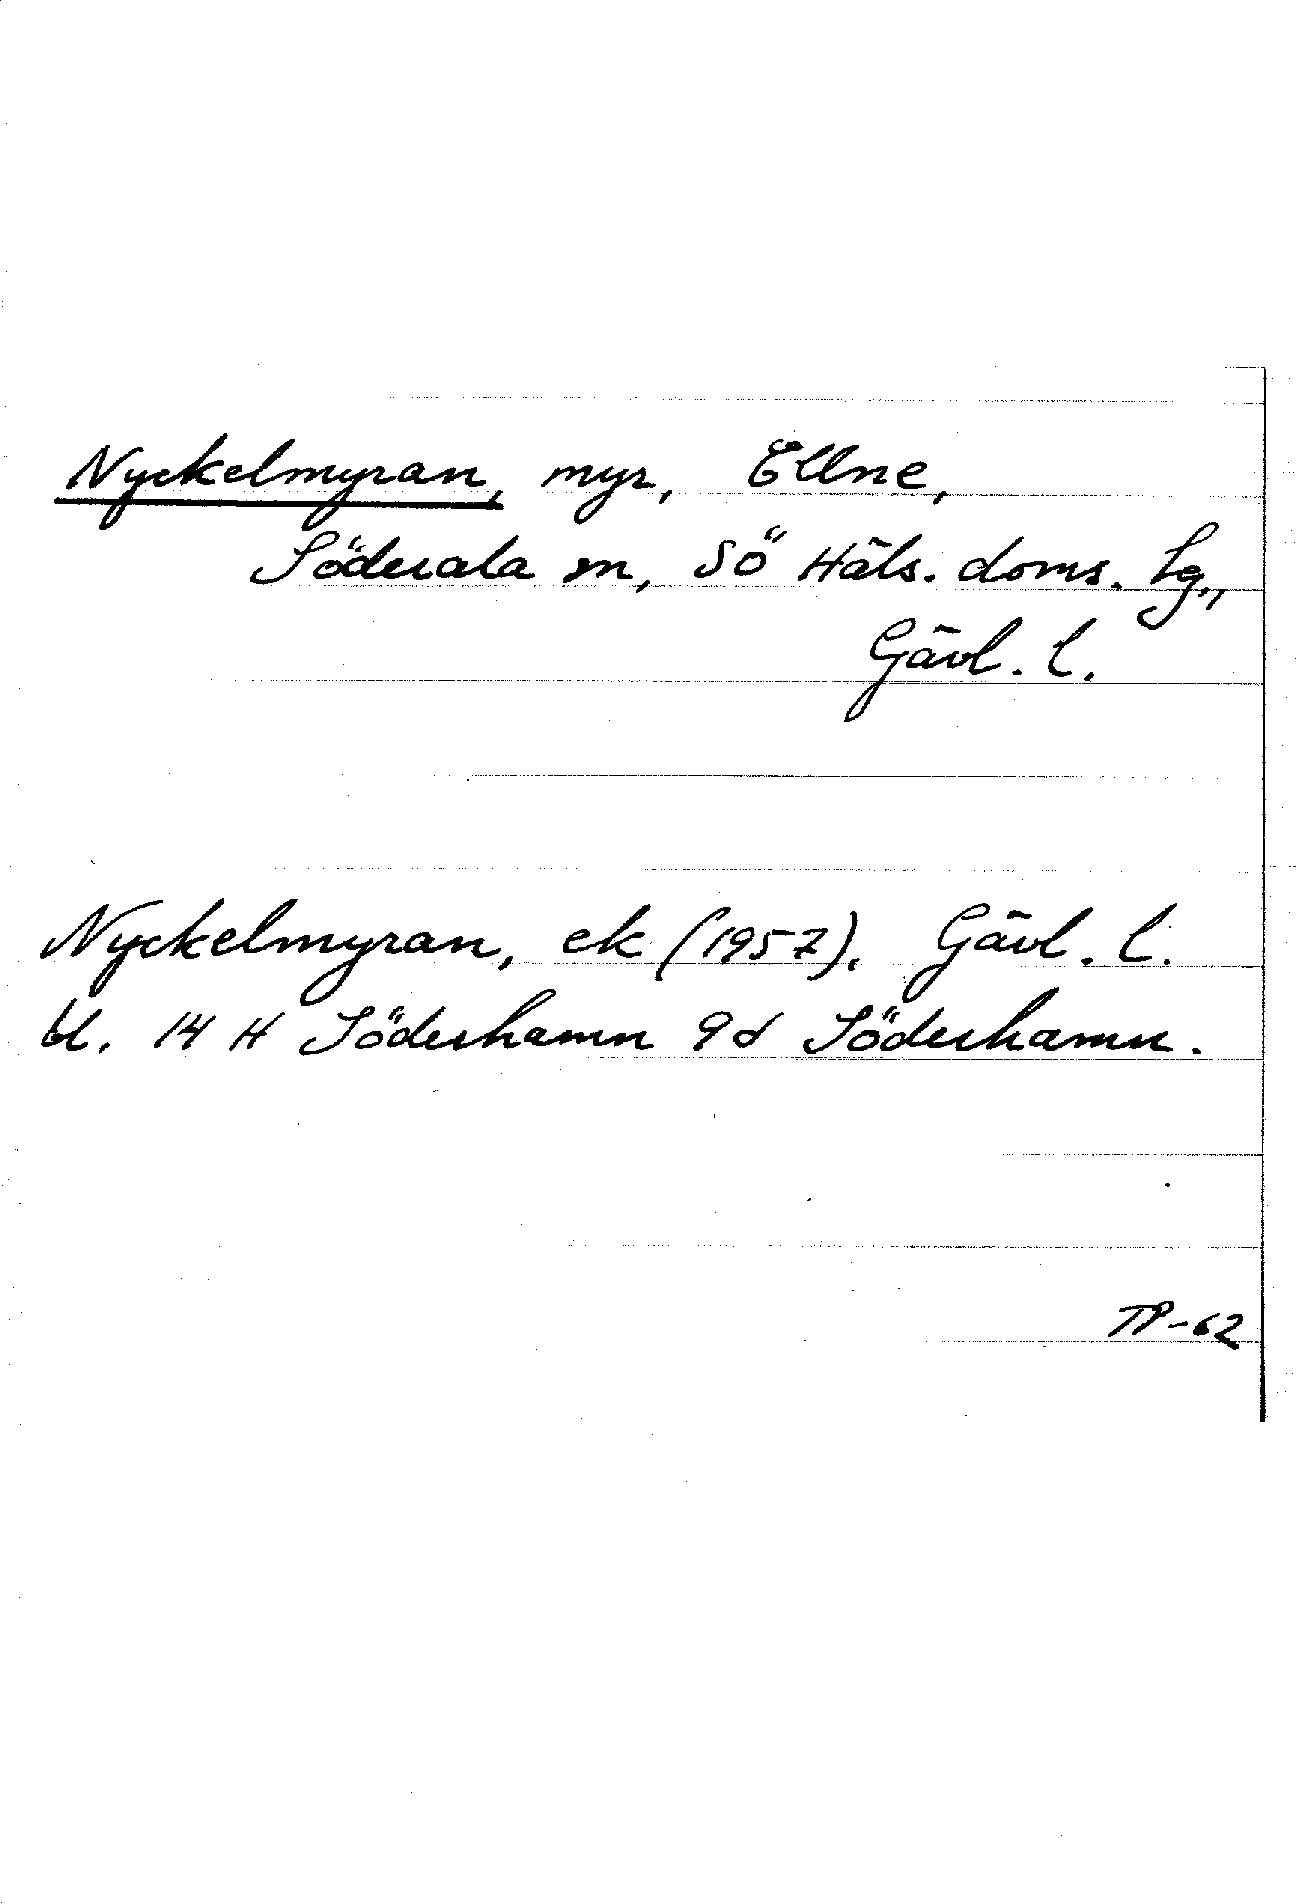 Nyckelmyran, myr, Ellne,
Söderala sn, Sö Häls. doms. lg.,
Gävl. l.
Nyckelmyran, ek (1957). Gävl. l.
bl. 14 H Söderhamn 9d Söderhamn.
TP-62